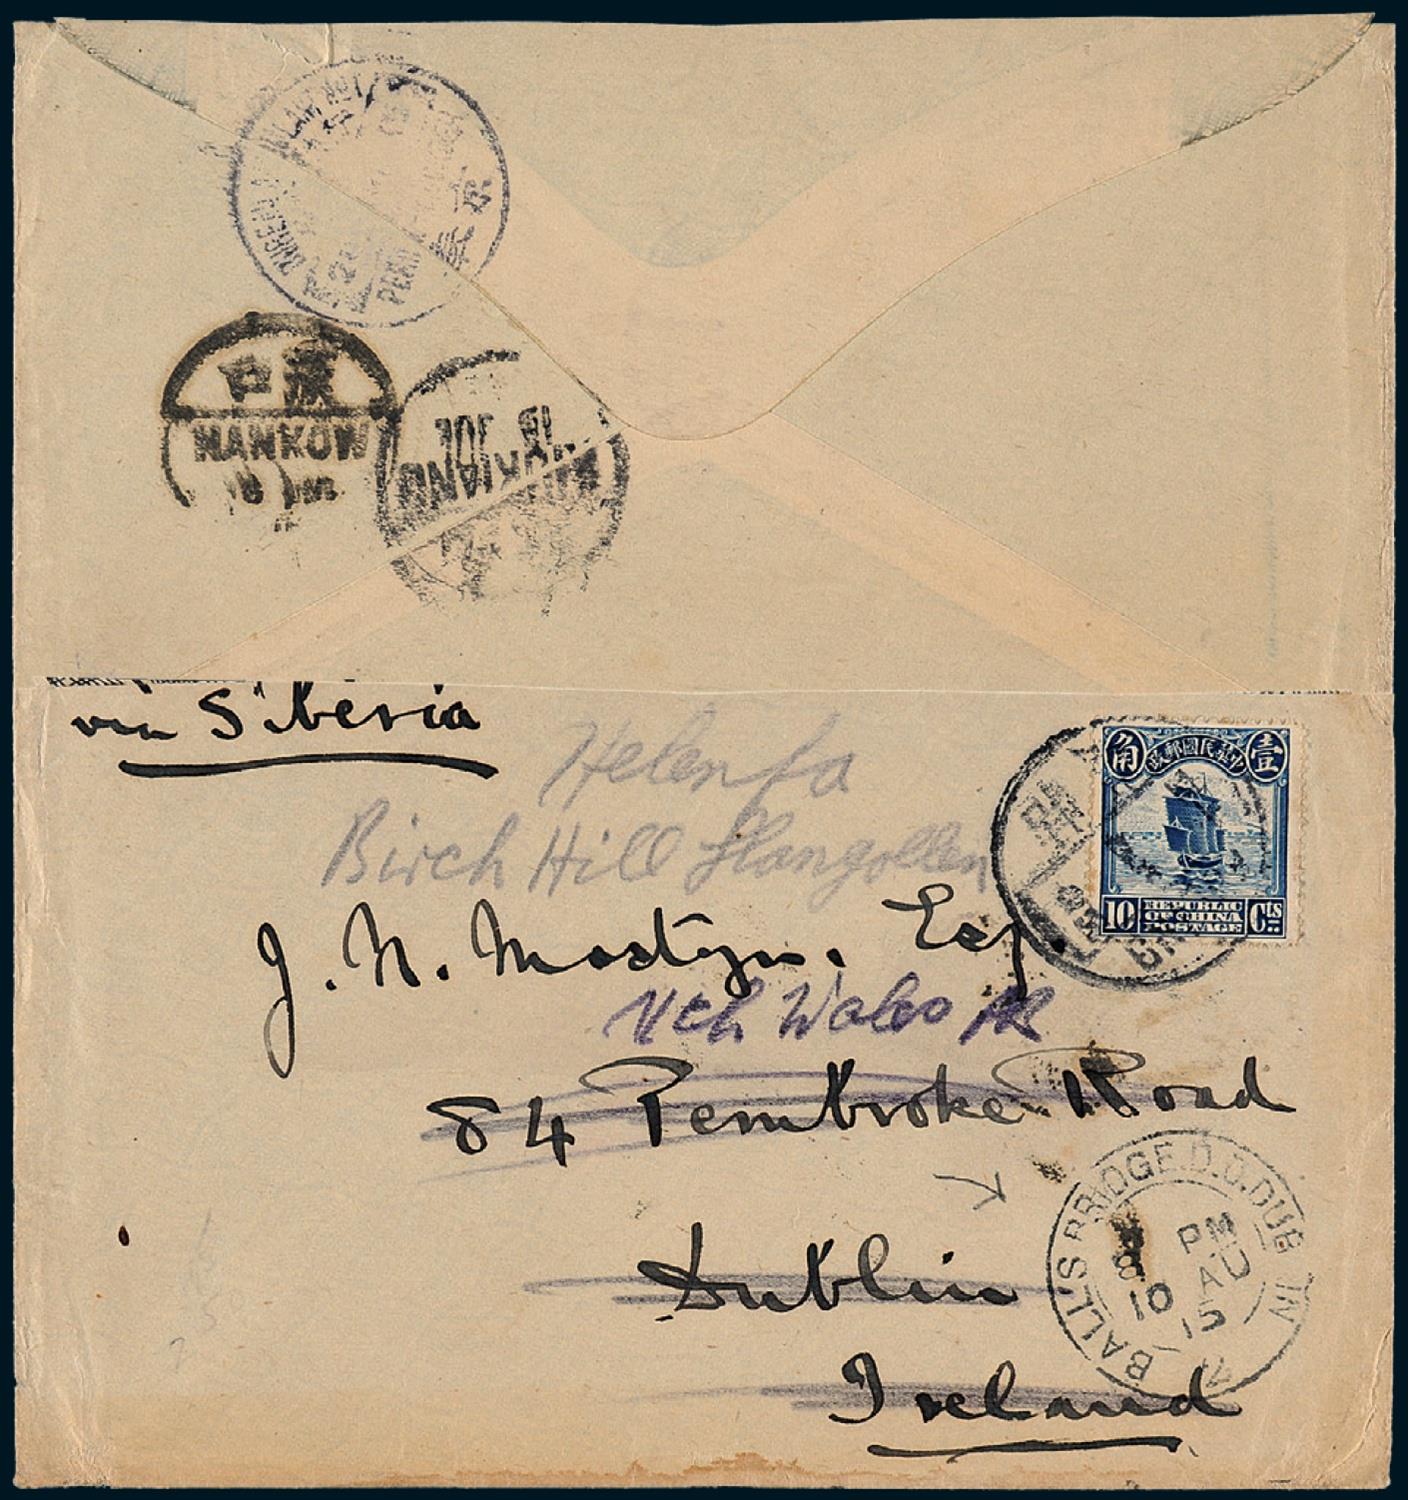 漢口
HANKOW
18 JUL
KIUKIANG
via Siberia
Helenfa
Birch Hill Llangollen
角 中華民國郵政 壹
10 REPUBLIC OF CHINA POSTAGE Cts
J. N. Mostyn. Esq.
Nth Wales
84 Pembroke Road
Dublin
Ireland
BALL'S BRIDGE.D.O.DUBLIN
PM
10 AU
15